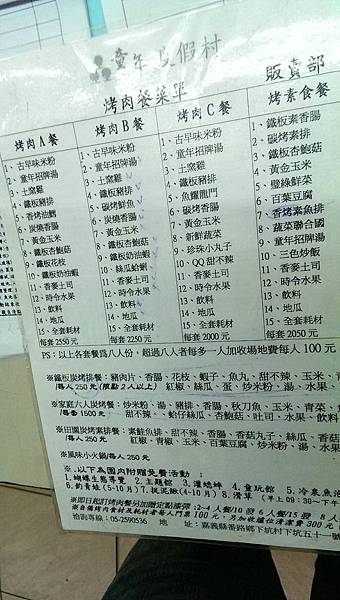 童年渡假村
烤肉餐菜單
販賣部
烤肉A餐
1、古早味米粉
2、童年招牌湯
3、土窯雞
4、鐵板豬排
5、香烤油鷄
6、炭燒香腸
7、黃金玉米
8、鐵板杏鮑菇
9、鐵板花枝
10、鐵板奶油蝦
11、香麥土司
12、時令水果
13、飲料
14、地瓜
15、全套耗材
每套2550元
烤肉B餐
1、古早味米粉
2、童年招牌湯
3、土窯雞
4、鐵板豬排
5、碳烤鮮魚
6、炭燒香腸
7、黃金玉米
8、鐵板杏鮑菇
9、鐵板奶油蝦
10、絲瓜蛤蜊
11、香麥土司
12、時令水果
13、飲料
14、地瓜
15、全套耗材
每套2250元
烤肉C餐
1、古早味米粉
2、童年招牌湯
3、土窯雞
4、鐵板豬排
5、魚耀龍門
6、碳烤香腸
7、黃金玉米
8、新鮮蔬菜
9、珍珠小丸子
10、QQ甜不辣
11、香麥土司
12、時令水果
13、飲料
14、地瓜
15、全套耗材
每套2000元
烤素食餐
1、鐵板素香腸
2、碳烤素排
3、鐵板杏鮑菇
4、黃金玉米
5、璧綠鮮菜
6、百葉豆腐
7、香烤素魚排
8、蔬菜聯合國
9、童年招牌湯
10、三色炒飯
11、香麥土司
12、時令水果
13、飲料
14、地瓜
15、全套耗材
每套2050元
PS：以上各套餐爲八人份，超過八人者每多一人加收場地費每人100元
※鐵板炭烤排餐：豬肉片、香腸、花枝、蝦子、魚丸、甜不辣、玉米、青
（每人250元（限點2人以上） 紅椒、絲瓜、蛋、炒米粉、湯、水果、
※家庭六人炭烤餐：炒米粉、湯、豬排、香腸、秋刀魚、玉米、青菜、魚
（每套1500元 甜不辣、蛤仔絲瓜、杏鮑菇、吐司、水果、飲
※田園炭烤素排餐：素鮭魚排、甜不辣、香腸、香菇丸子、絲瓜、香菇
（每人250元 紅椒、青椒、玉米、百葉豆腐、炒米粉、湯、水果
※風味小火鍋/每人250元
※.以下為園內附贈免費活動：
1.蝴蝶生態導覽 2.主題館 3.灌蟋蟀 4.童玩館 5.冷泉魚池
6.釣青蛙(5~10月) 7.捉泥鰍(4~10月) 8.滑草 (早上09:30~下午
※即日起訂烤肉餐另加贈定點漆彈:2~4人餐/10發 6人餐/15發 8人
※自備烤肉食材及耗材者每人門票100元，另加收爐位清潔費300元
洽詢專線：05-2590536 地 址：嘉義縣番路鄉下坑村下坑五十一號